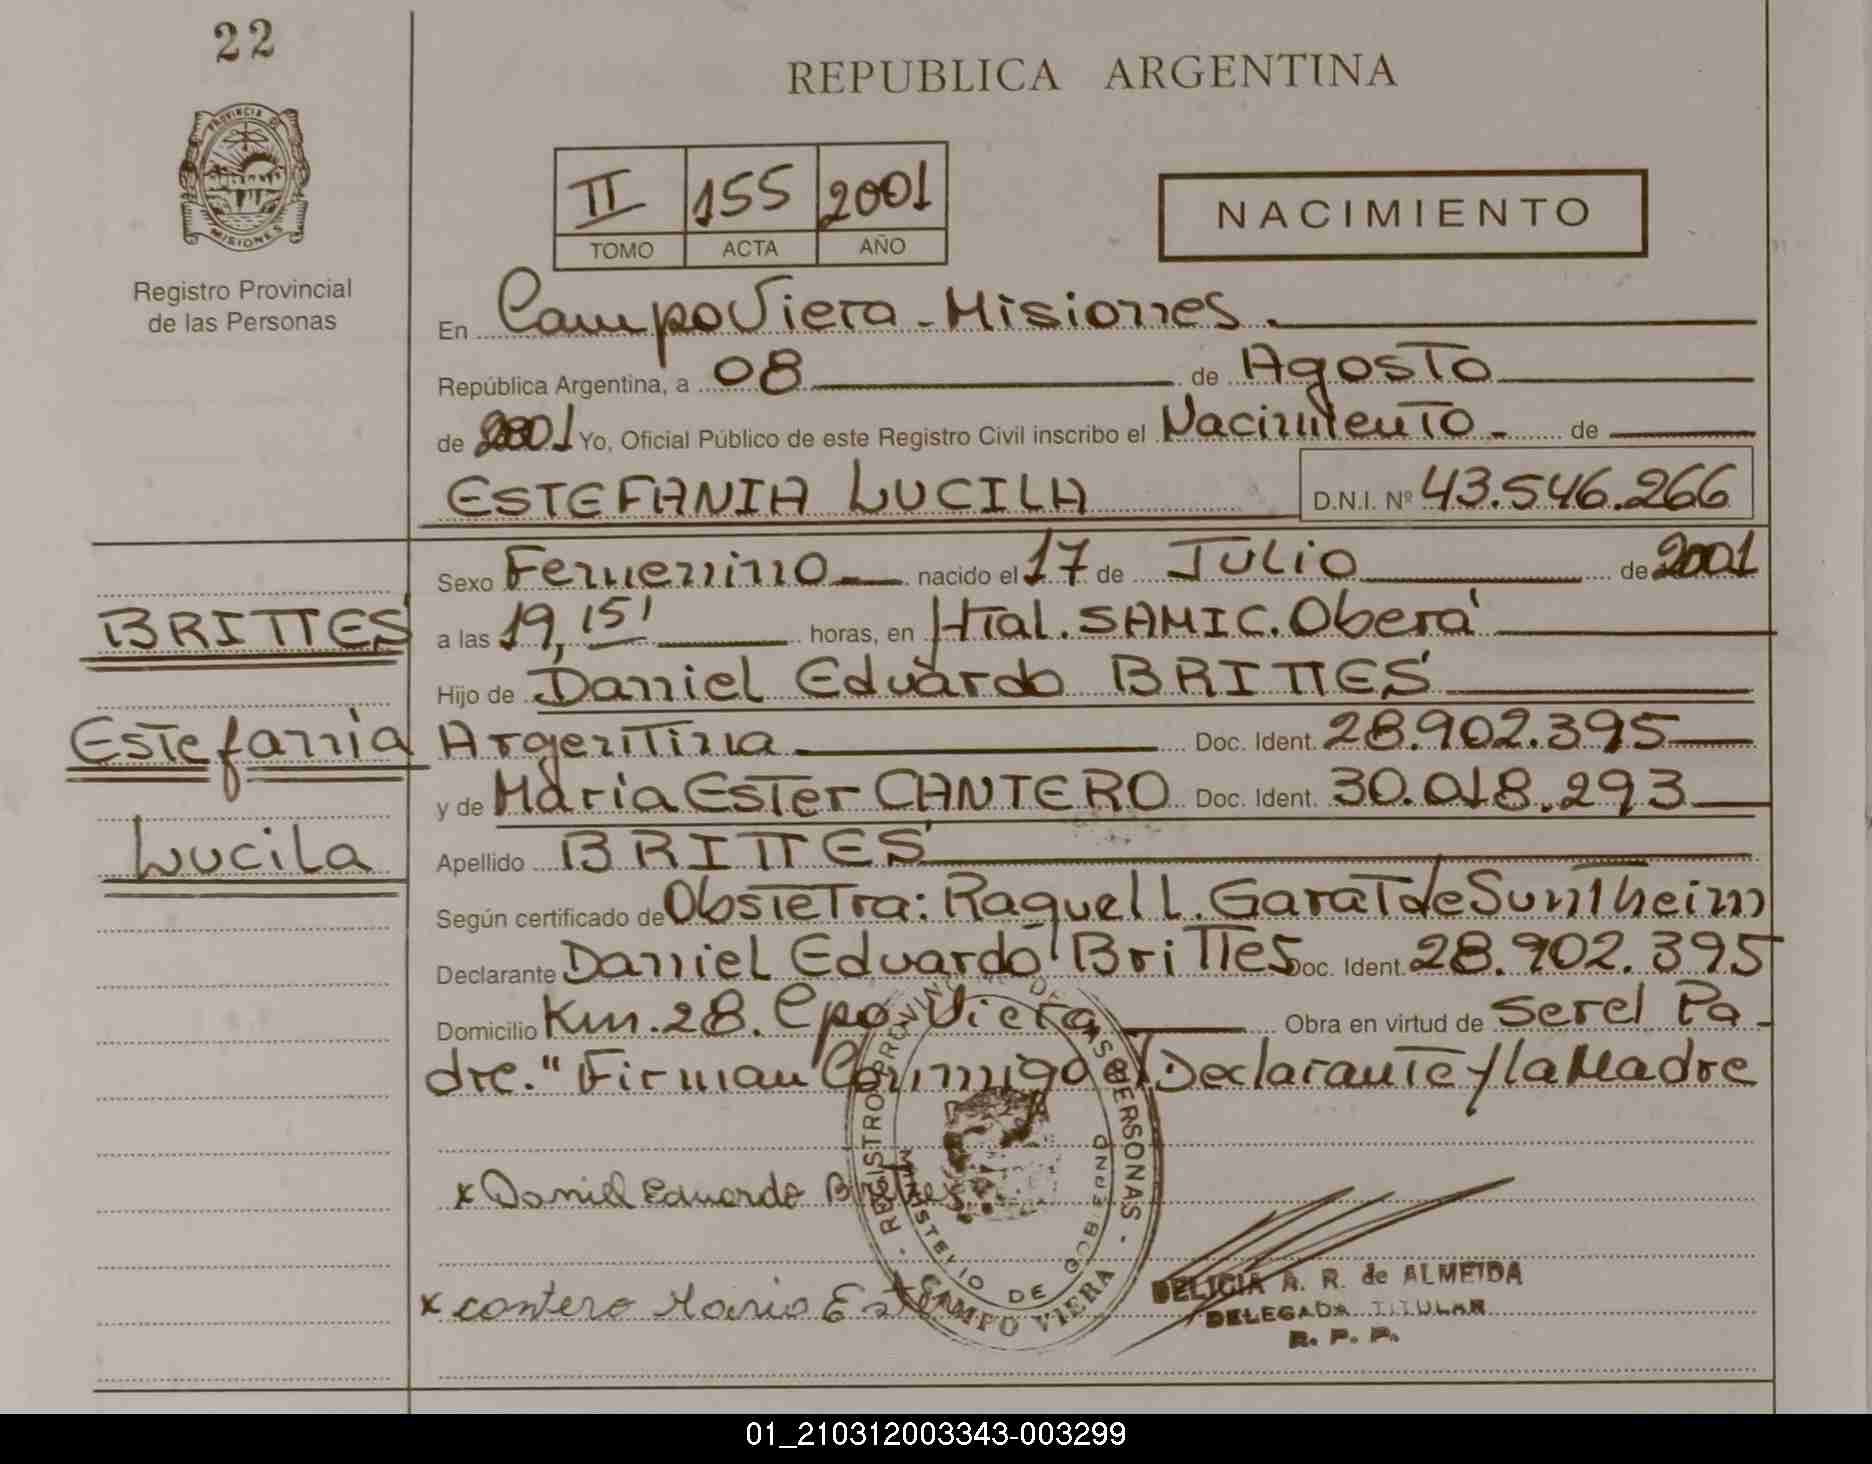 22
REPUBLICA ARGENTINA
PROVINCIA DE
MISIONES
Registro Provincial
de las Personas
II 155 2001
TOMO ACTA AÑO
NACIMIENTO
En Campo Viera - Misiones.
República Argentina, a 08 de Agosto
de 2001 Yo, Oficial Público de este Registro Civil inscribo el Nacimiento - de
ESTEFANIA LUCILA D.N.I. Nº 43.546.266
Sexo Femenino nacido el 17 de Julio de 2001
BRITTES
a las 19,15' horas, en Htal. SAMIC. Oberá
Hijo de Daniel Eduardo BRITTES
Estefania
Argentina Doc. Ident. 28.902.395
y de Maria Ester CANTERO Doc. Ident. 30.018.293
Lucila
Apellido BRITTES
Según certificado de Obstetra: Raquel L. Garat de Suntheim
Declarante Daniel Eduardo Brittes Doc. Ident. 28.902.395
Domicilio Km. 28. Cpo Viera Obra en virtud de ser el Pa-
dre." Firman Conmigo el Declarante y la Madre
REGISTRO PROVINCIAL DE LAS PERSONAS
MINISTERIO DE GOBIERNO
CAMPO VIERA
x Daniel Eduardo Brittes
x cantero Maria Ester
DELICIA A. R. de ALMEIDA
DELEGADA TITULAR
R. P. P.
01_210312003343-003299